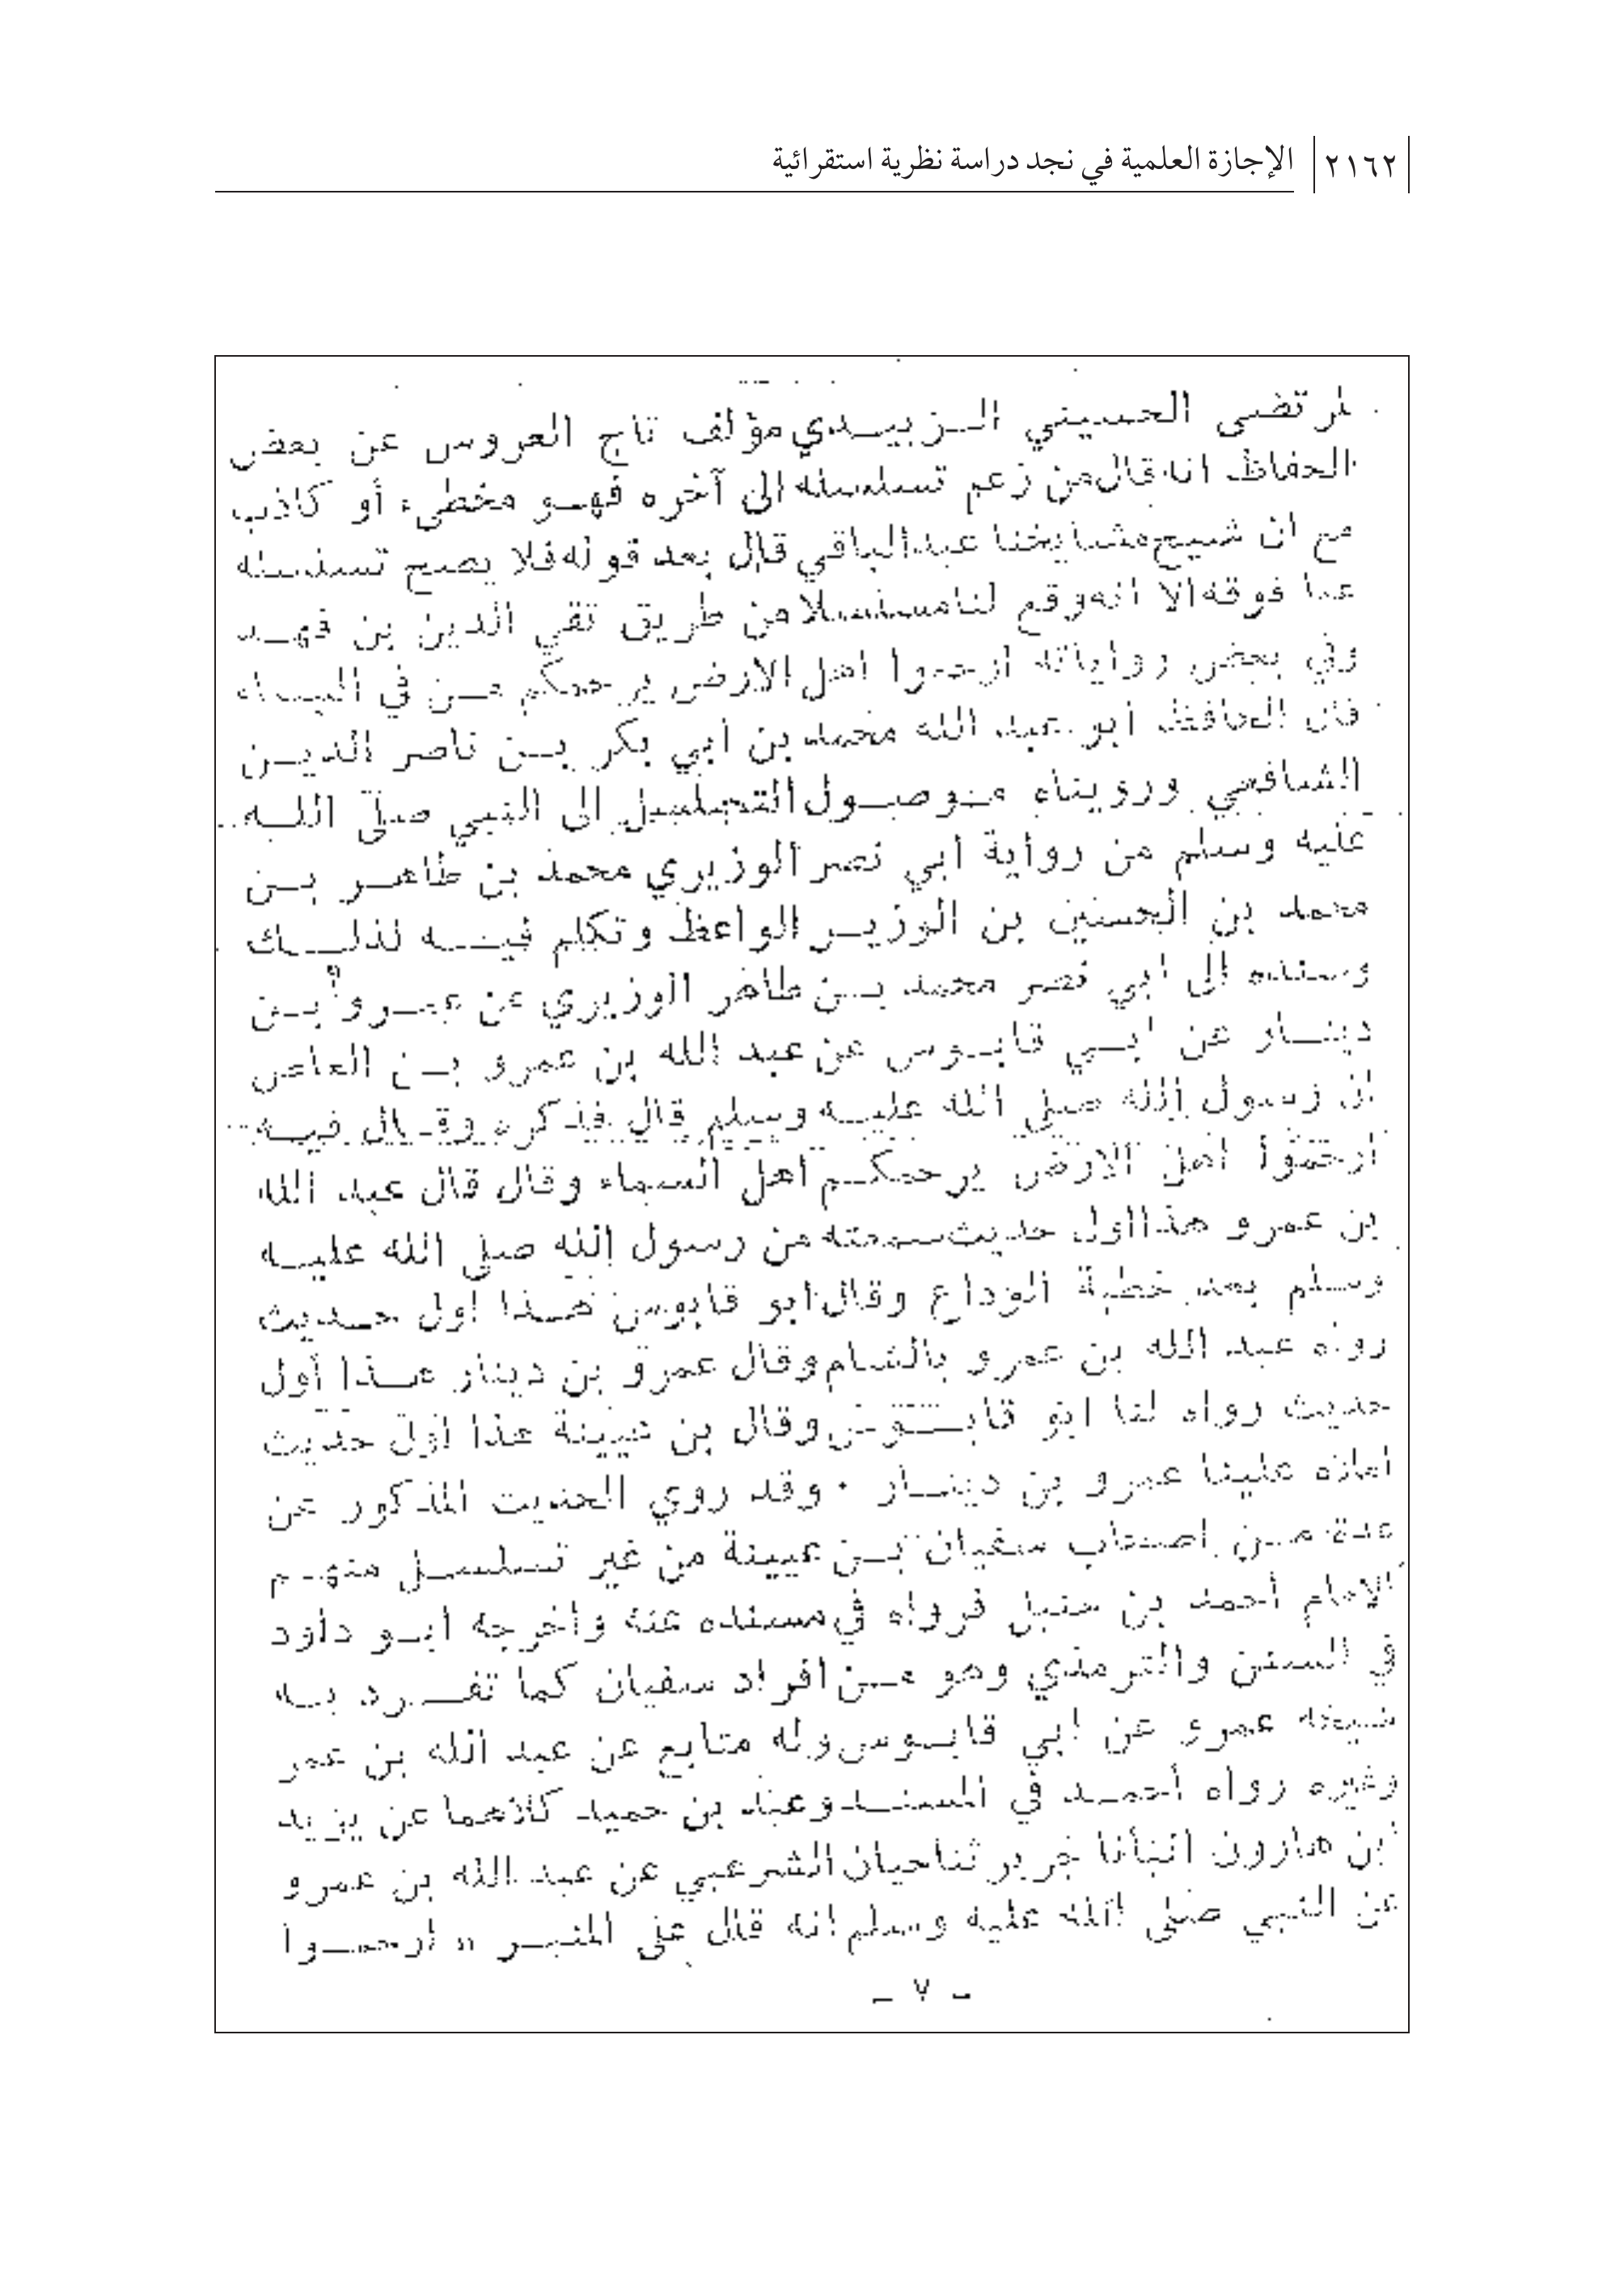 ٢١٦٢ الإجازة العلمية في نجد دراسة نظرية استقرائية
المرتضى الحسيني الزبيدي مؤلف تاج العروس عن بعض
الحفاظ انه قال من زعم تسلسله الى آخره فهو مخطيء أو كاذب
مع ان شيخ مشايخنا عبدالباقي قال بعد قوله فلا يصح تسلسله
عما فوقه الا انه وقع لنا مسلسلا من طريق تقي الدين بن فهد
وفي بعض رواياته ارحموا اهل الارض يرحمكم من في السماء
قال الحافظ أبو عبد الله محمد بن أبي بكر بن ناصر الدين
الشافعي ورويناه موصول التسلسل الى النبي صلى الله
عليه وسلم من رواية أبي نصر الوزيري محمد بن طاهر بن
محمد بن الحسين بن الوزير الواعظ وتكلم فيه لذلك
وسنده الى ابي نصر محمد بن طاهر الوزيري عن عمرو بن
دينار عن ابي قابوس عن عبد الله بن عمرو بن العاص
ان رسول الله صلى الله عليه وسلم قال فذكره وقال فيه
ارحموا اهل الارض يرحمكم اهل السماء وقال قال عبد الله
بن عمرو هذا اول حديث سمعته من رسول الله صلى الله عليه
وسلم بعد خطبة الوداع وقال ابو قابوس هذا اول حديث
رواه عبد الله بن عمرو بالشام وقال عمرو بن دينار هذا أول
حديث رواه لنا ابو قابوس وقال بن عيينة هذا اول حديث
املاه علينا عمرو بن دينار ٠ وقد روي الحديث المذكور عن
عدة من اصحاب سفيان بن عيينة من غير تسلسل منهم
الامام أحمد بن حنبل فرواه في مسنده عنه واخرجه ابو داود
في السنن والترمذي وهو من افراد سفيان كما تفرد به
شيخه عمرو عن ابي قابوس وله متابع عن عبد الله بن عمر
وغيره رواه أحمد في المسند وعبد بن حميد كلاهما عن يزيد
بن هارون انبأنا جرير ثنا حيان الشرعبي عن عبد الله بن عمرو
عن النبي صلى الله عليه وسلم انه قال على المنبر « ارحموا
ـ ٧ ـ